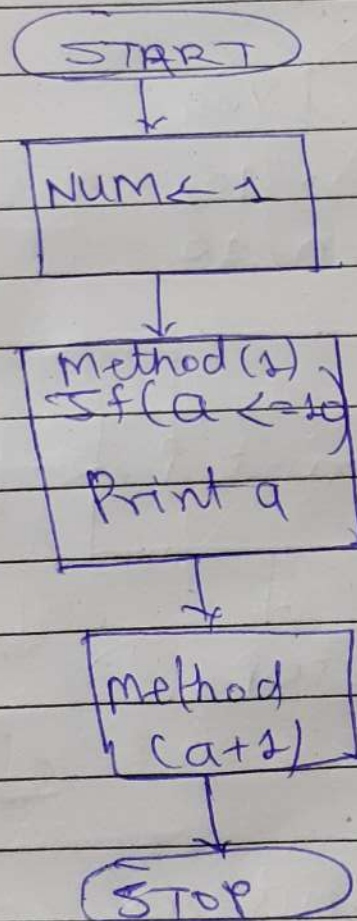 START
NUM ← 1
Method(1)
If(a <=10)
Print a
Method
(a+1)
STOP